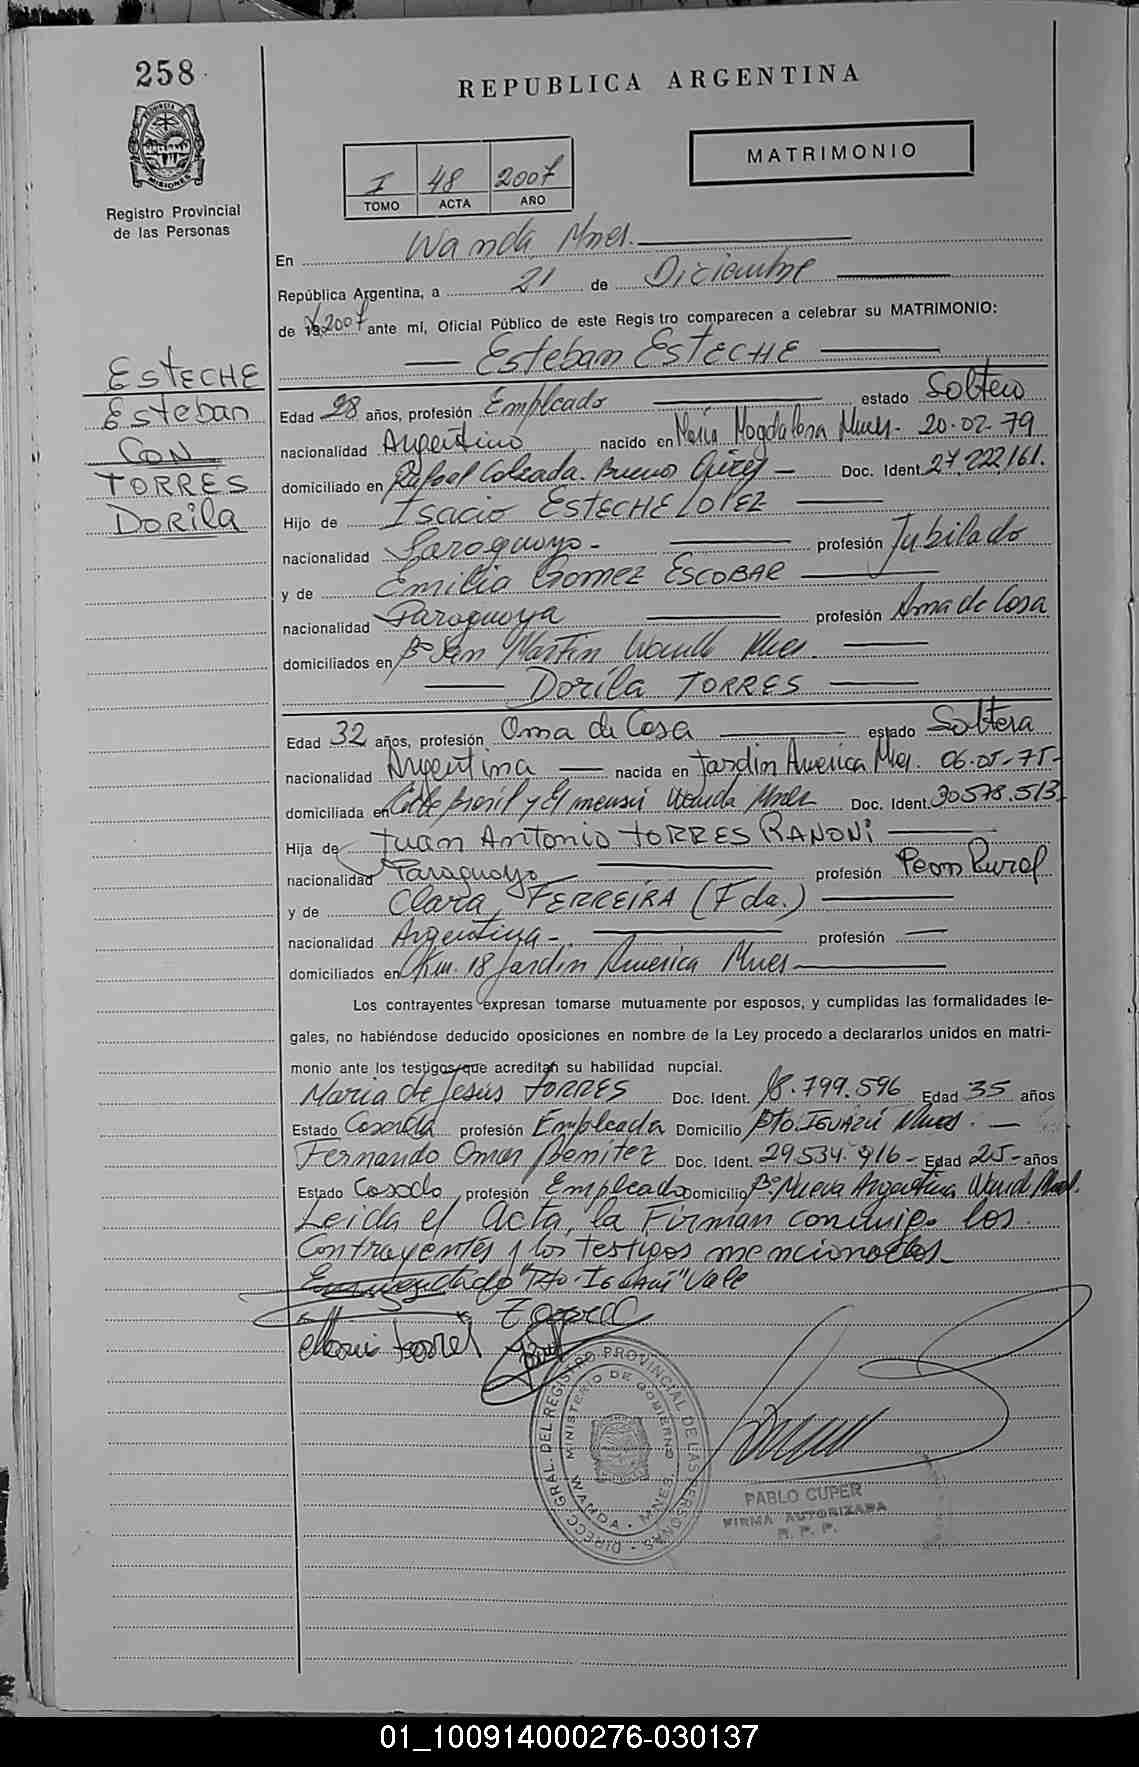 258
REPUBLICA ARGENTINA
MATRIMONIO
I 48 2007
TOMO ACTA AÑO
Registro Provincial
de las Personas
En Wanda, Mnes.
República Argentina, a 21 de Diciembre
de 2007 ante mí, Oficial Público de este Registro comparecen a celebrar su MATRIMONIO:
Esteban ESTECHE
ESTECHE
Esteban
CON
TORRES
DORILA
Edad 28 años, profesión Empleado estado Soltero
nacionalidad Argentino nacido en María Magdalena Mnes - 20-02-79
domiciliado en Rafael Calzada. Buenos Aires - Doc. Ident. 27.222161.
Hijo de Isacio ESTECHE LOPEZ
nacionalidad Paraguayo - profesión Jubilado
y de Emilia Gomez ESCOBAR
nacionalidad Paraguaya profesión Ama de Casa
domiciliados en Bº San Martin Wanda Mnes.
Dorila TORRES
Edad 32 años, profesión Ama de Casa estado Soltera
nacionalidad Argentina nacida en Jardin America Mnes. 06-05-75-
domiciliada en Calle Brasil y El mensú Wanda Mnes Doc. Ident. 30578.513
Hija de Juan Antonio TORRES RANONI
nacionalidad Paraguayo profesión Peon Rural
y de Clara FERREIRA (Fda.)
nacionalidad Argentina - profesión
domiciliados en Km. 18 Jardin America Mnes
Los contrayentes expresan tomarse mutuamente por esposos, y cumplidas las formalidades le-
gales, no habiéndose deducido oposiciones en nombre de la Ley procedo a declararlos unidos en matri-
monio ante los testigos que acreditan su habilidad nupcial.
Maria de Jesus TORRES Doc. Ident. 18.799.596 Edad 35 años
Estado Casada profesión Empleada Domicilio PTO. IGUAZÚ Mnes.
Fernando Omar Benitez Doc. Ident. 29.534.916 - Edad 25 - años
Estado Casado profesión Empleado Domicilio Bº Nueva Argentina Wanda Mnes.
Leida el Acta, la Firman conmigo los
Contrayentes y los testigos mencionados.
Enmendado "Pto. Iguazú" Vale
Maria Torres
DIRECC. GRAL. DEL REGISTRO PROVINCIAL DE LAS PERSONAS
MINISTERIO DE GOBIERNO
WANDA - MNES.
PABLO CUPER
FIRMA AUTORIZADA
R. P. P.
01_100914000276-030137